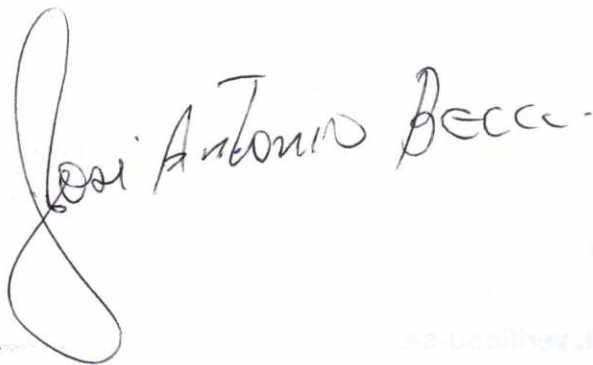 José Antonio Becc